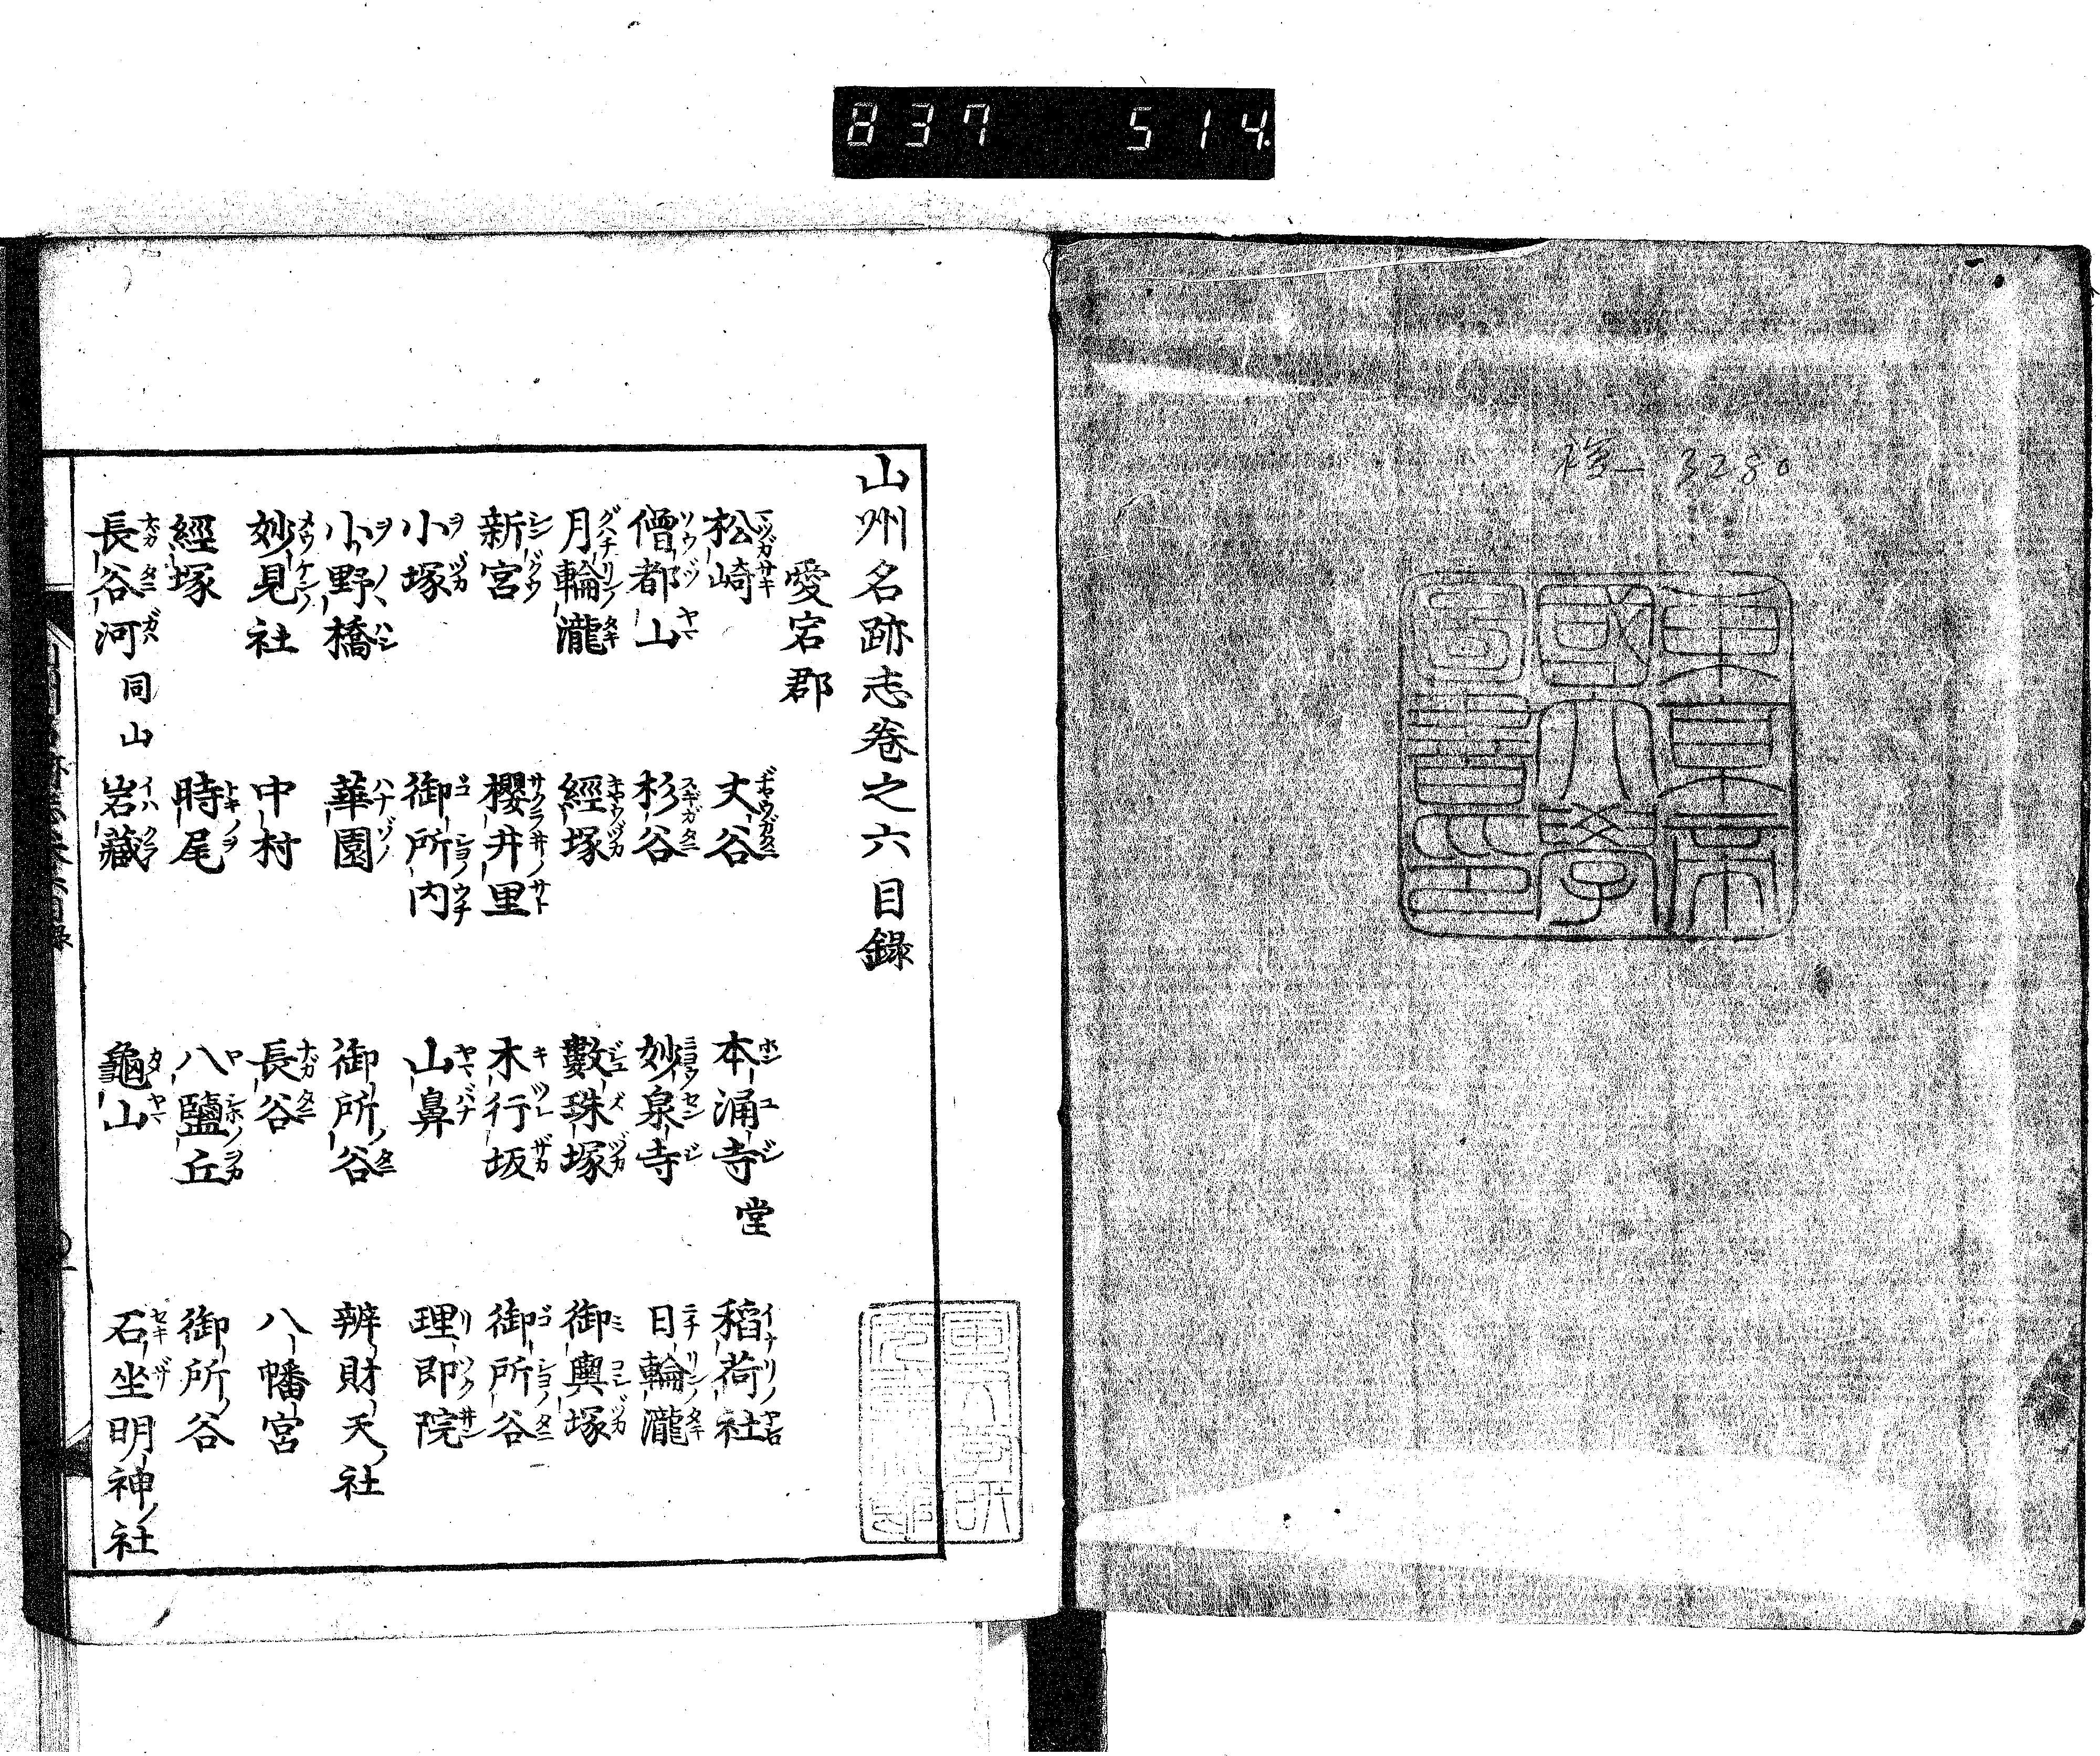 837 514
3280
東京帝
國大學
圖書之印
山州名跡志卷之六目錄
愛宕郡
松崎 丈谷 本涌寺 堂 稻荷社
僧都山 杉谷 妙泉寺 日輪瀧
月輪瀧 經塚 數珠塚 御輿塚
新宮 櫻井里 木行坂 御所谷
小塚 御所内 山鼻 理即院
小野橋 華園 御所谷 辨財天社
妙見社 中村 長谷 八幡宮
經塚 時尾 八鹽丘 御所谷
長谷河 同山 岩藏 龜山 石坐明神ノ社